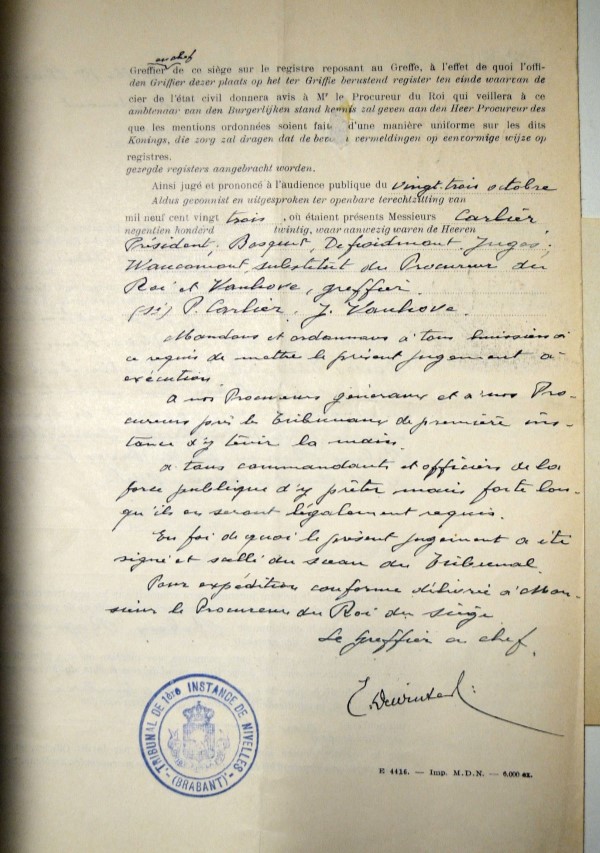 en chef
Greffier de ce siège sur le registre reposant au Greffe, à l'effet de quoi l'offi-
den Griffier dezer plaats op het ter Griffie berustend register ten einde waarvan de
cier de l'état civil donnera avis à Mr le Procureur du Roi qui veillera à ce
ambtenaar van den Burgerlijken stand kennis zal geven aan den Heer Procureur des
que les mentions ordonnées soient faites d'une manière uniforme sur les dits
Konings, die zorg zal dragen dat de vermeldingen op eenvormige wijze op
registres.
gezegde registers aangebracht worden.
Ainsi jugé et prononcé à l'audience publique du vingt-trois octobre
Aldus gevonnist en uitgesproken ter openbare terechtzitting van
mil neuf cent vingt trois, où étaient présents Messieurs Carlier,
negentien honderd twintig, waar aanwezig waren de Heeren
Président; Bosquet, Defroidmont, Juges;
Waucomont, substitut du Procureur du
Roi et Vanhove, greffier.
(sé) P. Carlier, J. Vanhove.
Mandons et ordonnons à tous huissiers à
ce requis de mettre le présent jugement à
exécution.
A nos Procureurs généraux et à nos Pro-
cureurs près les Tribunaux de première ins-
tance d'y tenir la main.
à tous commandants et officiers de la
force publique d'y prêter main forte lors-
qu'ils en seront légalement requis.
En foi de quoi le présent jugement a été
signé et scellé du sceau du Tribunal.
Pour expédition conforme délivrée à Mon-
sieur le Procureur du Roi du siège
Le Greffier en chef.
TRIBUNAL DE 1ère INSTANCE DE NIVELLES
(BRABANT)
E 4416. — Imp. M.D.N. — 6.000 ex.